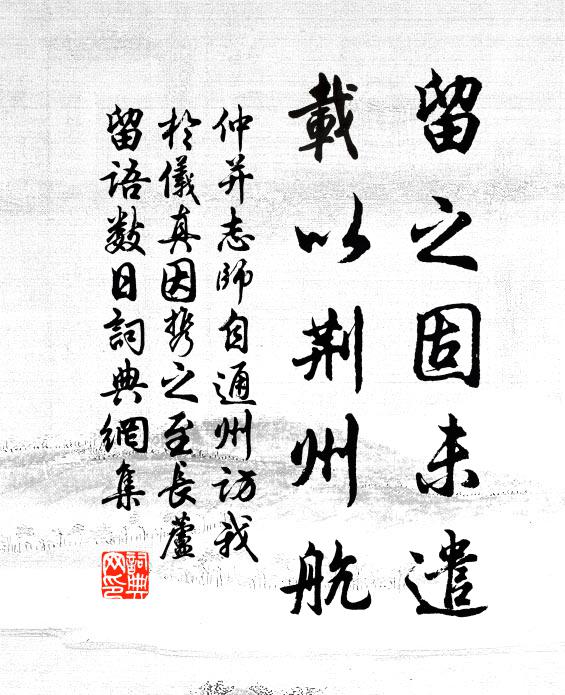 留之固未遣
載以荆州航
仲并志師自通州访我
於儀真因携之至長蘆
留语数日詞典網集
詞典网印